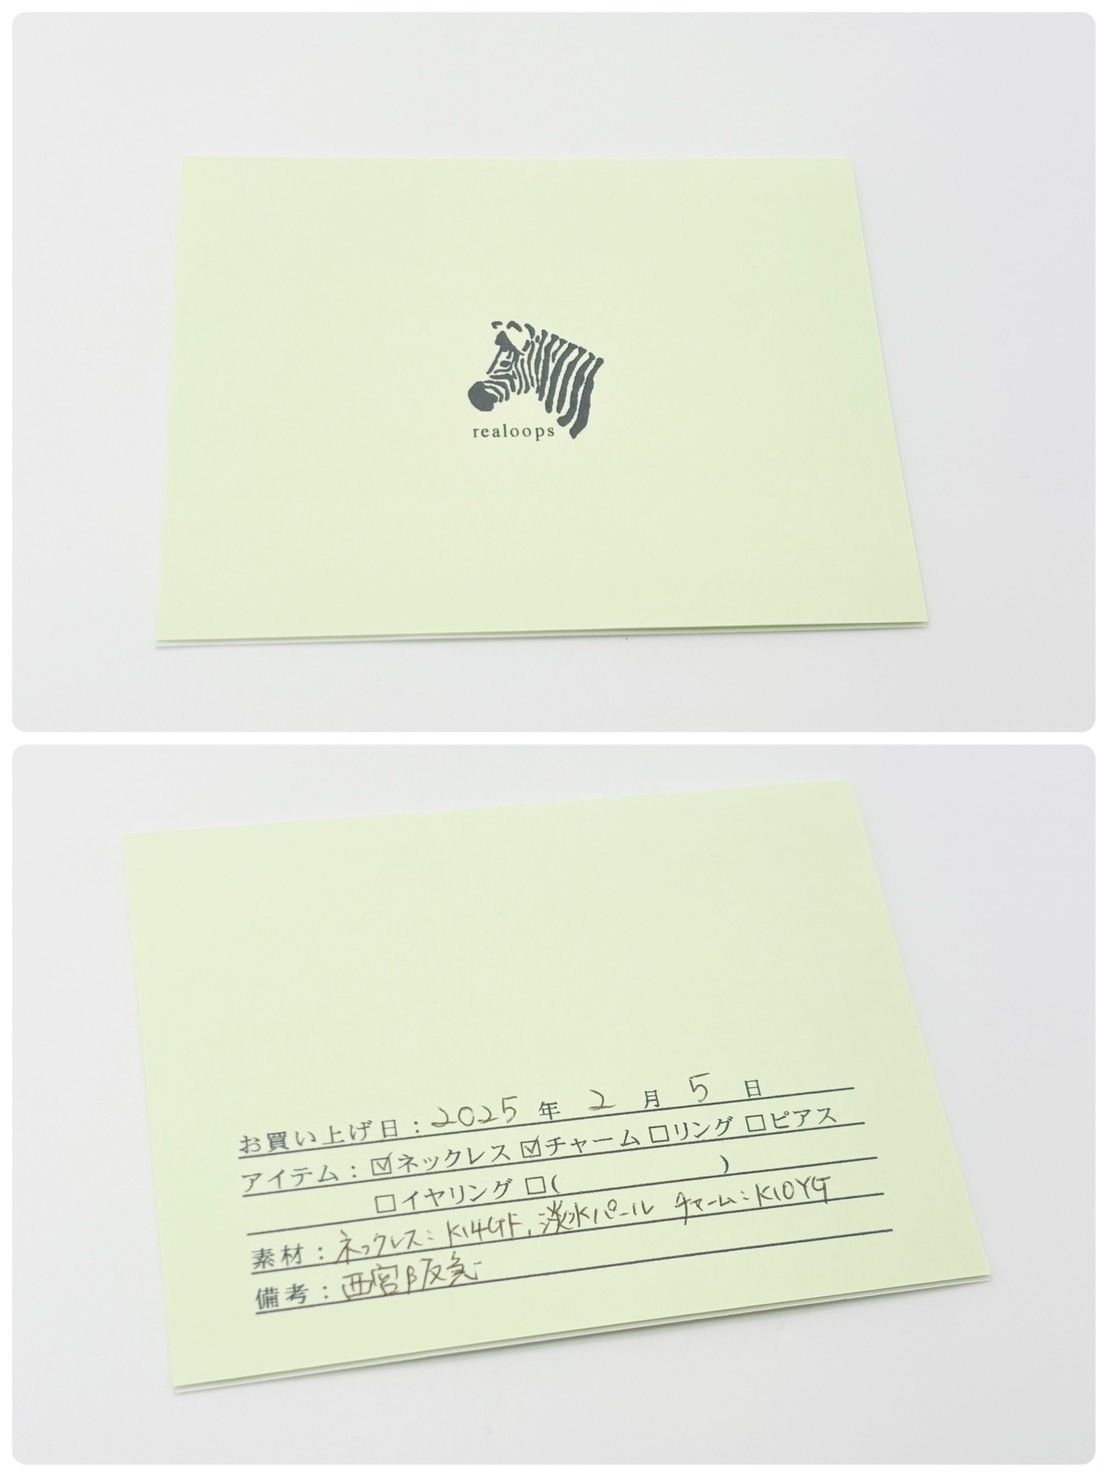 realoops
お買い上げ日：2025 年 2 月 5 日
アイテム：☑ネックレス ☑チャーム □リング □ピアス
□イヤリング □（　　　　　）
素材：ネックレス：K14GF、淡水パール チャーム：K10YG
備考：西宮阪急